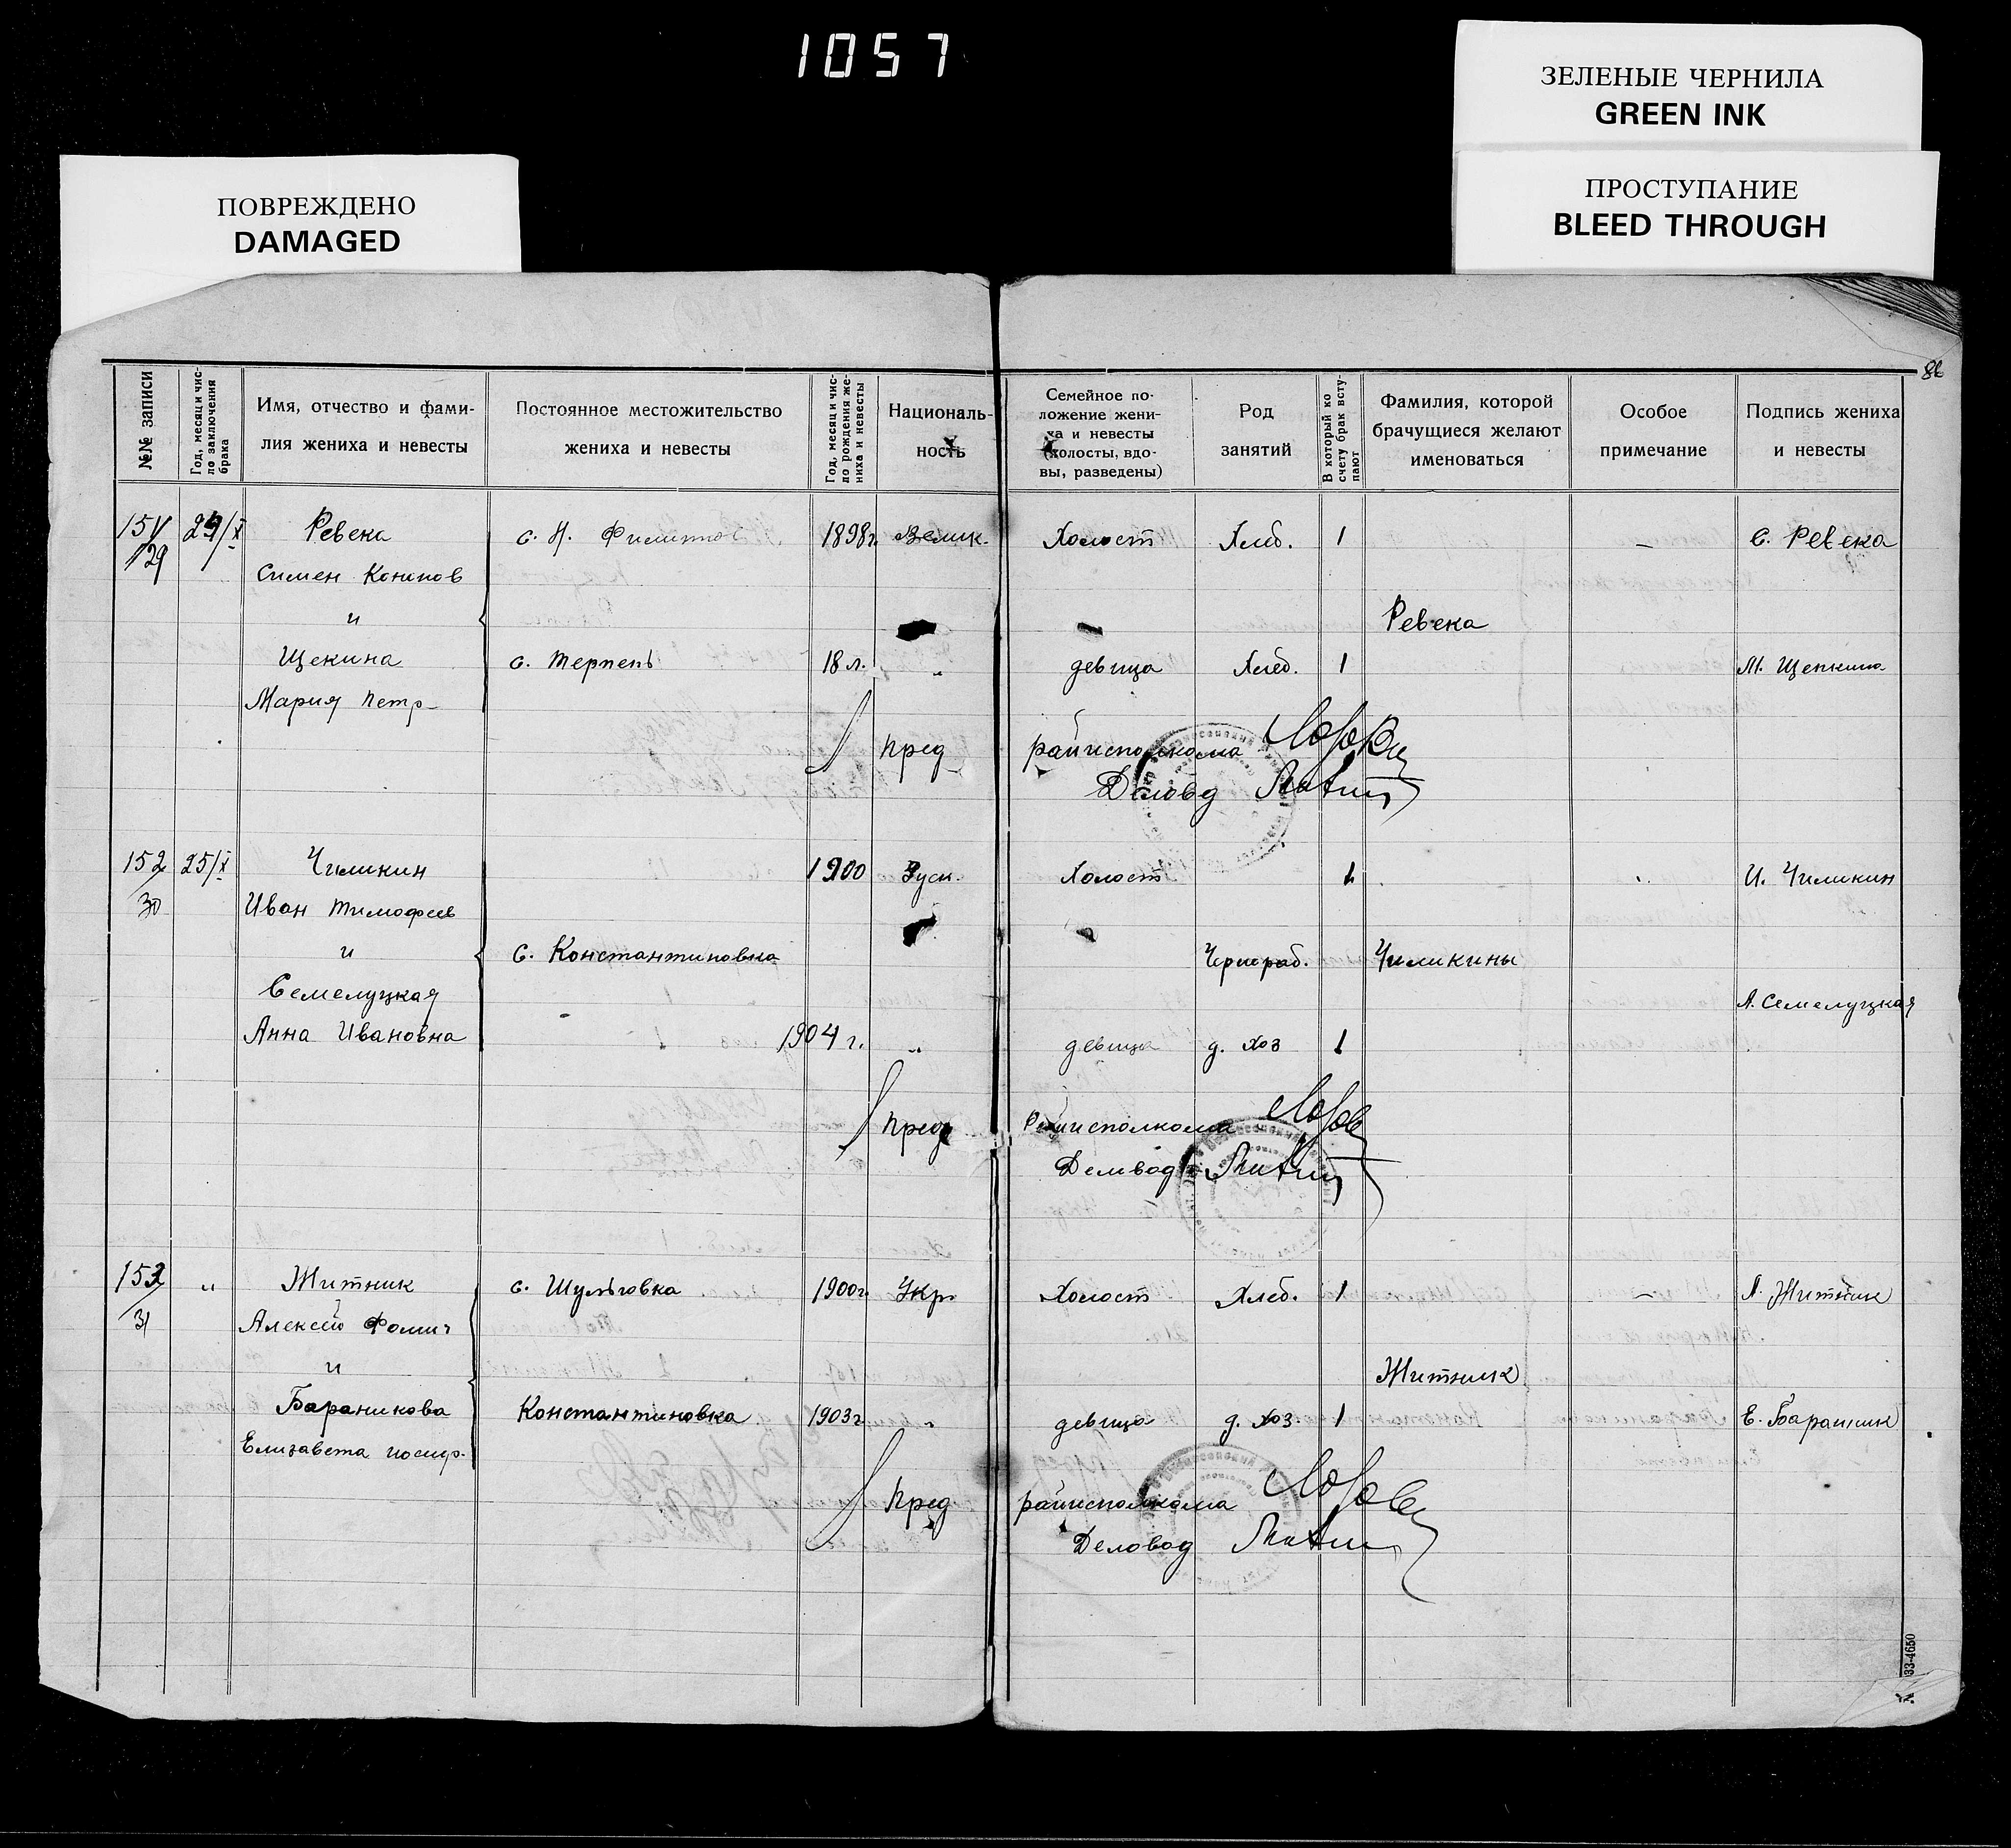 1057
ЗЕЛЕНЫЕ ЧЕРНИЛА
GREEN INK
ПРОСТУПАНИЕ
BLEED THROUGH
ПОВРЕЖДЕНО
DAMAGED
№№ записи
Год, месяц и чис-
ло заключения
брака
Имя, отчество и фами-
лия жениха и невесты
Постоянное местожительство
жениха и невесты
Год, месяц и чис-
ло рождения же-
ниха и невесты
Националь-
ность
Семейное по-
ложение жени-
ха и невесты
(холосты, вдо-
вы, разведены)
Род
занятий
В который ко
счету брак всту-
пают
Фамилия, которой
брачущиеся желают
именоваться
Особое
примечание
Подпись жениха
и невесты
29 Ревека с. Н. 1898г. Велик. Холост Хлеб. 1 — С. Ревека
Симен
и Ревека
Щекина с. Терпень 18 л. „ девица Хлеб. 1 М. Щепкина
Мария Петр-
Пред райисполкома
Деловод
152 25/X Чиликин 1900 Руск. Холост 1 И. Чиликин
30 Иван Тимофеев
и с. Константиновка Чернораб. Чиликины
Семелуцкая А. Семелуцкая
Анна Ивановна 1904 г. „ девица д. хоз 1
Пред Райисполкома
Деловод
153 „ Житник с. Шульговка 1900г Укр. Холост Хлеб. 1 — А. Житник
31 Алексей Фомич
и Житник
Бараникова Константиновка 1903г „ девица д. хоз 1 Е. Бараник
Елизавета
Пред райисполкома
Деловод
33-4650